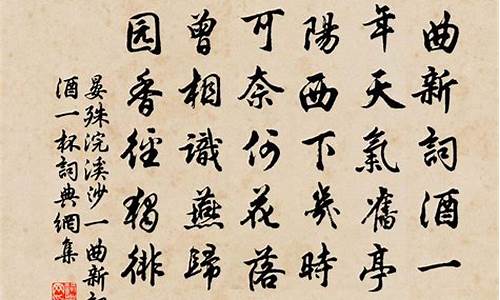 曲新詞酒一
年天氣舊亭
陽西下幾時
可奈何花落
曾相識燕歸
园香徑獨徘
晏殊浣溪沙一曲新詞
酒一杯詞典網集